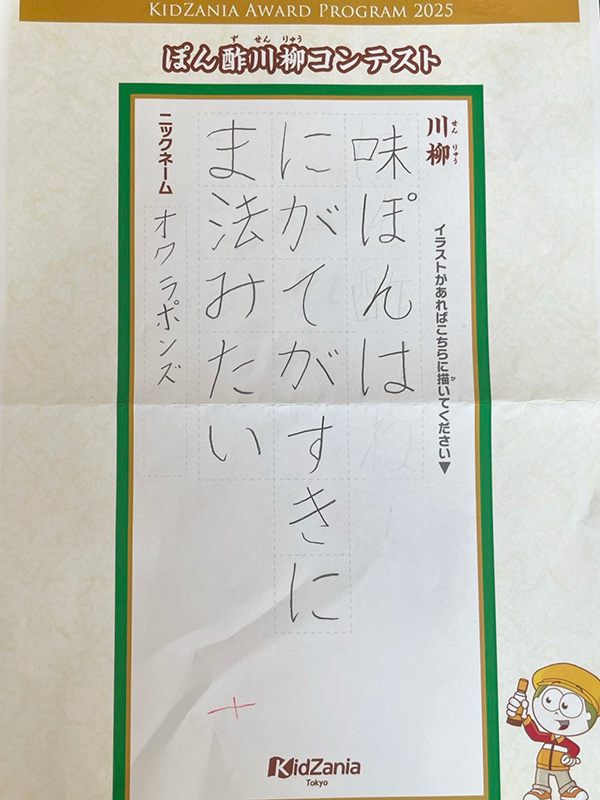 KIDZANIA AWARD PROGRAM 2025
ぽん酢川柳コンテスト
ず せん りゅう
川柳
せん りゅう
イラストがあればこちらに描いてください▼
か
味ぽんは
にがてがすきに
ま法みたい
ニックネーム
オワラポンズ
KidZania
Tokyo